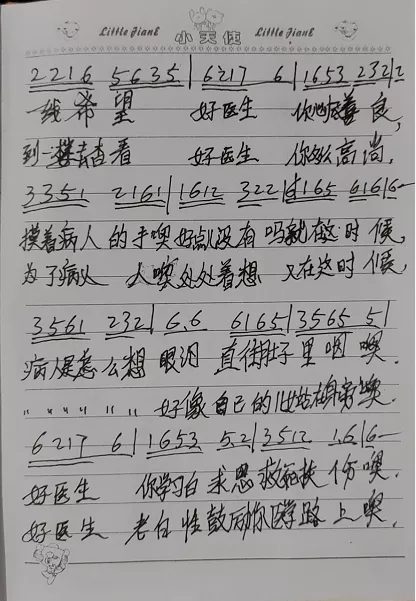 Little Jianl 小天使 Little Jianl
2216 5635 | 6217 6 | 1653 232 | 2
一线希望 好医生 你心地善良,
到一楼去查看 好医生 你多么高尚,
3351 2161 | 1612 322 | 2165 616 | 6—
摸着病人的手噢好点没有吗就在这时候,
为了病人 人噢处处着想 又在这时候,
3561 232 | 6.6 6165 | 3565 5 |
病人是怎么想 眼泪 直往肚子里咽噢.
" " " " " " 好像自己的 站在身旁噢.
6217 6 | 1653 5.2 | 3512 1.6 | 6—
好医生 你学习白求恩救死扶伤噢.
好医生 老百姓鼓励你医学路上噢.